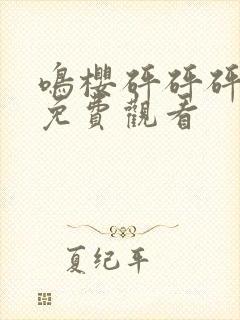 鳴櫻砰砰砰
免費觀看
夏纪年